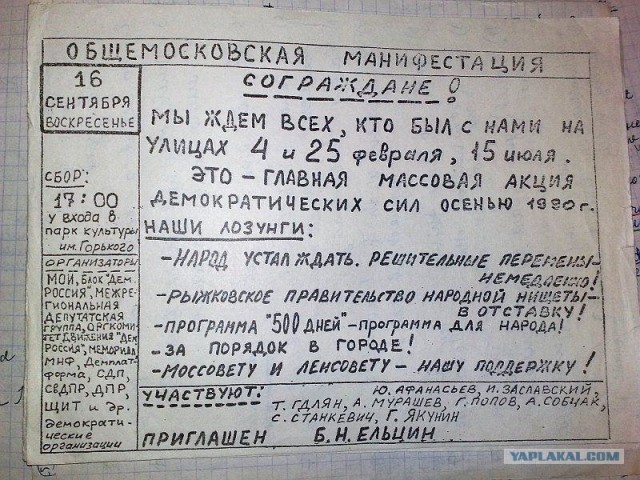 ОБЩЕМОСКОВСКАЯ МАНИФЕСТАЦИЯ
16
СЕНТЯБРЯ
ВОСКРЕСЕНЬЕ
СБОР:
17:00
У ВХОДА В
ПАРК КУЛЬТУРЫ
ИМ. ГОРЬКОГО
ОРГАНИЗАТОРЫ
МОИ, БЛОК "ДЕМ.
РОССИЯ", МЕЖРЕ-
ГИОНАЛЬНАЯ
ДЕПУТАТСКАЯ
ГРУППА, ОРГКОМИ-
ТЕТ ДВИЖЕНИЯ "ДЕМ
РОССИЯ", МЕМОРИАЛ
МНФ, ДЕМПЛАТ-
ФОРМА, СДП,
СВДПР, ДПР,
ЩИТ и др.
демократи-
ческие
организации
СОГРАЖДАНЕ!
МЫ ЖДЕМ ВСЕХ, КТО БЫЛ С НАМИ НА
УЛИЦАХ 4 и 25 февраля, 15 июля.
ЭТО - ГЛАВНАЯ МАССОВАЯ АКЦИЯ
ДЕМОКРАТИЧЕСКИХ СИЛ ОСЕНЬЮ 1990 г.
НАШИ ЛОЗУНГИ:
- НАРОД УСТАЛ ЖДАТЬ. РЕШИТЕЛЬНЫЕ ПЕРЕМЕНЫ -
НЕМЕДЛЕННО!
- РЫЖКОВСКОЕ ПРАВИТЕЛЬСТВО НАРОДНОЙ НИЩЕТЫ -
В ОТСТАВКУ!
- ПРОГРАММА "500 ДНЕЙ" - ПРОГРАММА ДЛЯ НАРОДА!
- ЗА ПОРЯДОК В ГОРОДЕ!
- МОССОВЕТУ И ЛЕНСОВЕТУ - НАШУ ПОДДЕРЖКУ!
УЧАСТВУЮТ: Ю. АФАНАСЬЕВ, И. ЗАСЛАВСКИЙ,
Т. ГДЛЯН, А. МУРАШЕВ, Г. ПОПОВ, А. СОБЧАК,
С. СТАНКЕВИЧ, Г. ЯКУНИН
ПРИГЛАШЕН Б. Н. ЕЛЬЦИН
YAPLAKAL.COM